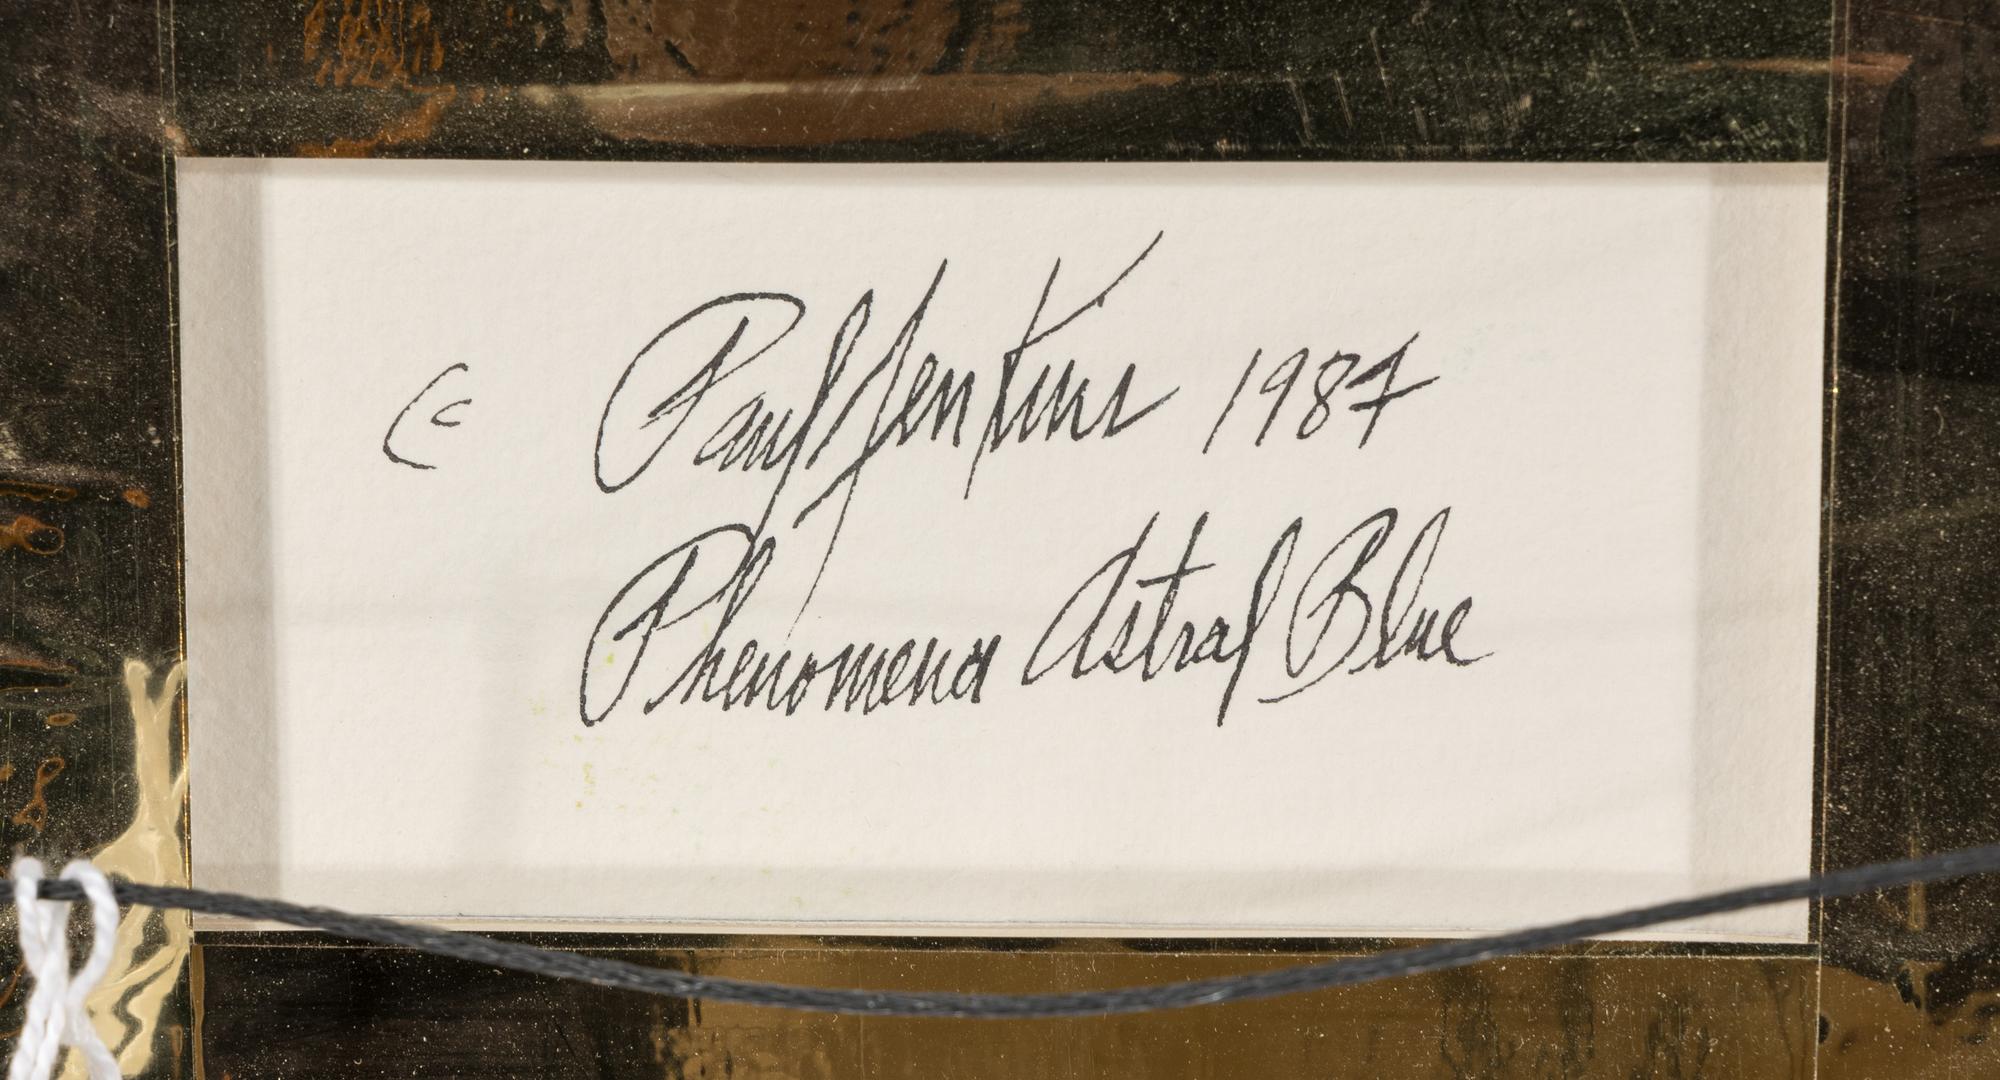 © Paul Jenkins 1987
Phenomena Astral Blue